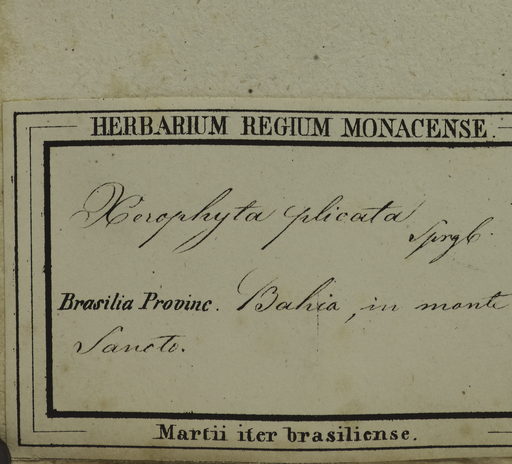 HERBARIUM REGIUM MONACENSE.
Xerophyta plicata
Sprgl.
Brasilia Provinc. Bahia, in monte
Sancto.
Martii iter brasiliense.